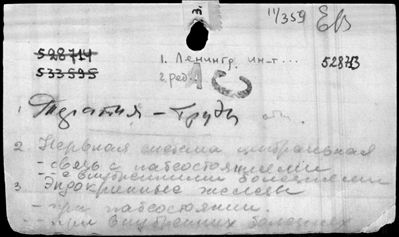 11/359 ЕВ
528714
533595
1. Ленингр. ин-т... 52873
2. ред.
АС
1 Терапия - Труды
2 Нервная система центральная
- связь с патсостояниями
- с внутренними болезнями
3. Эндокринные железы
- при патсостоянии.
- при внутренних болезнях